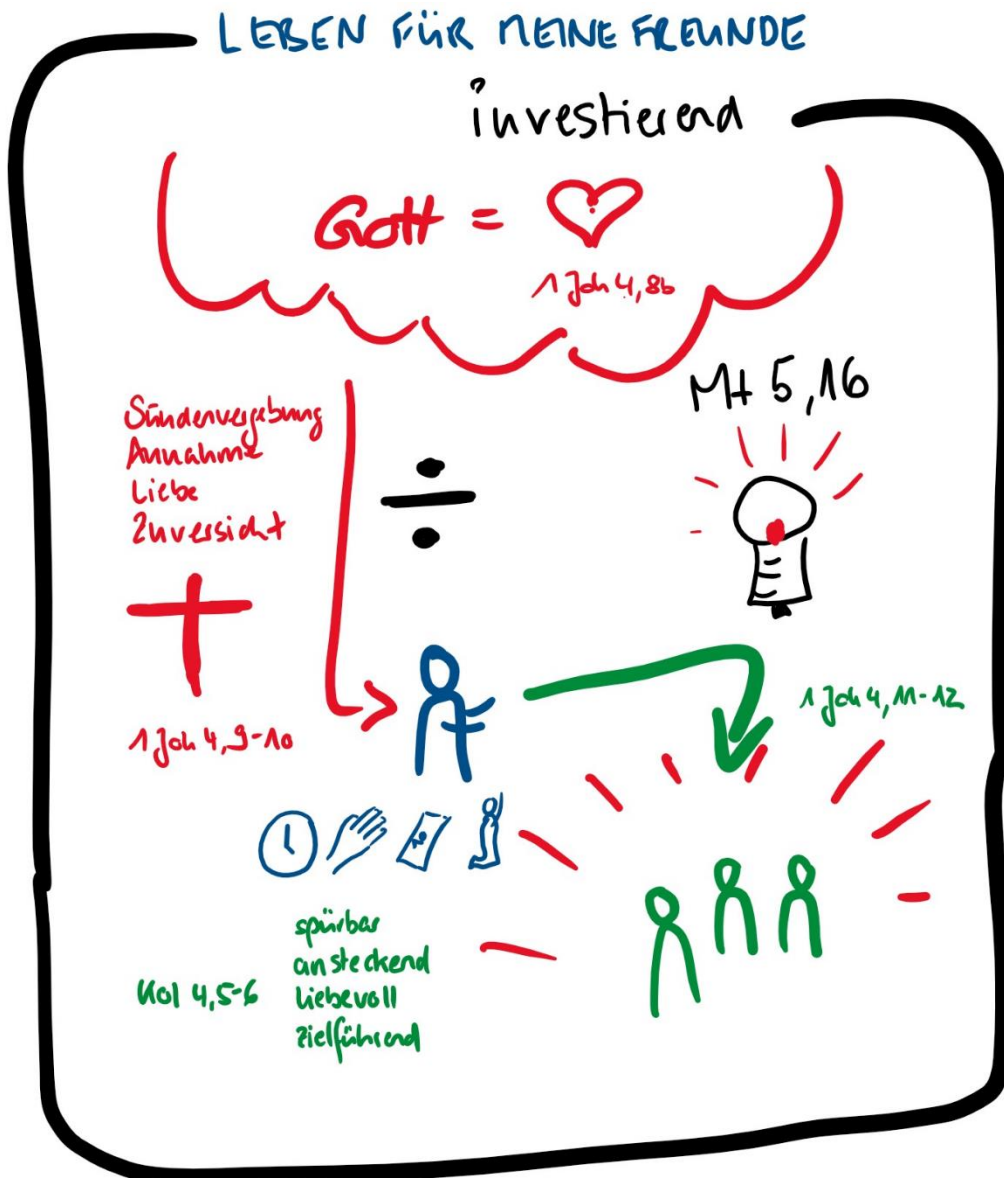 LEBEN FÜR MEINE FREUNDE
investierend
Gott =
1 Joh 4,8b
Mt 5,16
Sündenvergebung
Annahme
Liebe
Zuversicht
1 Joh 4,9-10
1 Joh 4,11-12
spürbar
ansteckend
Kol 4,5-6 liebevoll
zielführend